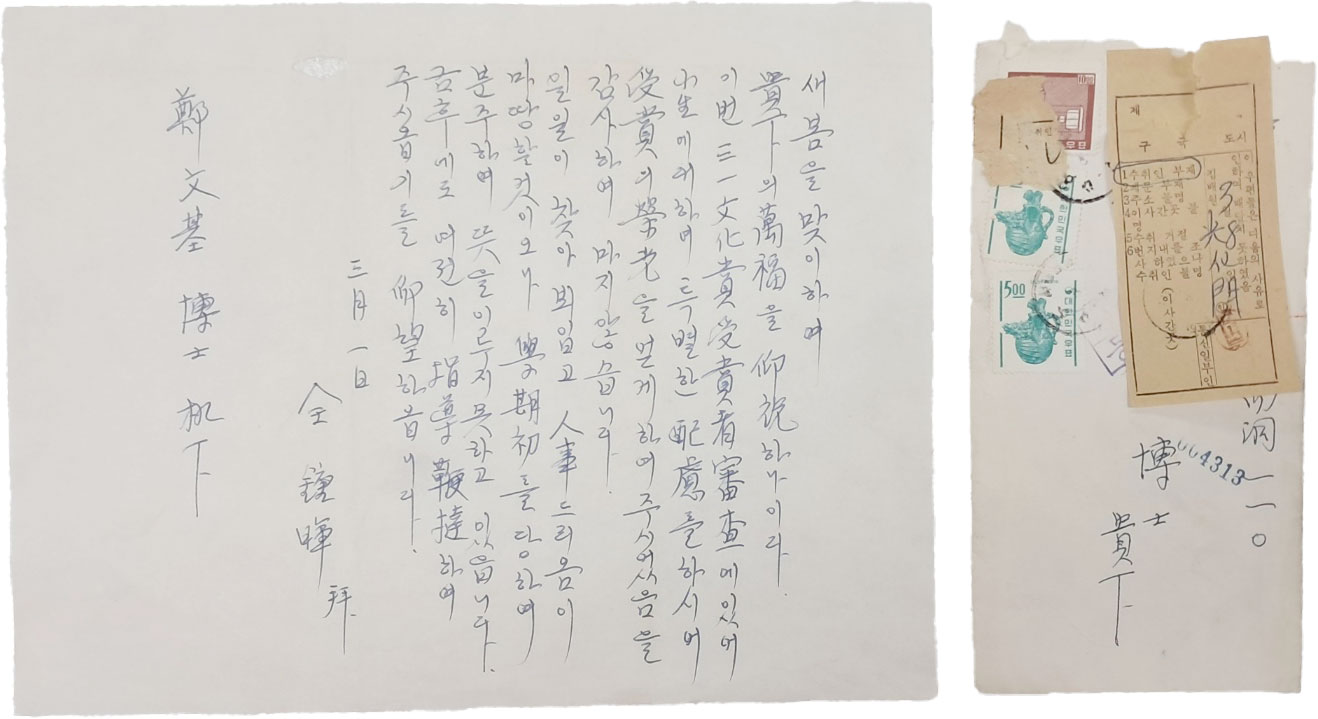 새봄을 맞이하여
貴下의 萬福을 仰祝하나이다.
이번 三一文化賞受賞者審査에있어
小生에대하여 특별한 配慮를하시며
受賞의榮光을얻게하여주시었음을
감사하여 마지않습니다.
일일이 찾아뵈입고 人事드리옴이
마땅할것이오나 學期初를당하여
분주하여 뜻을이루지못하고 있습니다.
금후에도 여전히 指導鞭撻하여
주시옵기를 仰望하옵니다.
三月 一日
全 鍾暉 拜
鄭文基 博士 机下
一一〇
博士
貴下
004313
10.00
5.00
대한민국우표
5.00
대한민국우표
제
구 국
도 시
이 우편물은 다음의 사유로
인하여 배달치 못하였음
집배원
3월 8일
光化門
1 수취인 부재
2 문패
3 주소불명
4 이사간곳 불명
5 수취거절
(이사간곳)
통신일부인